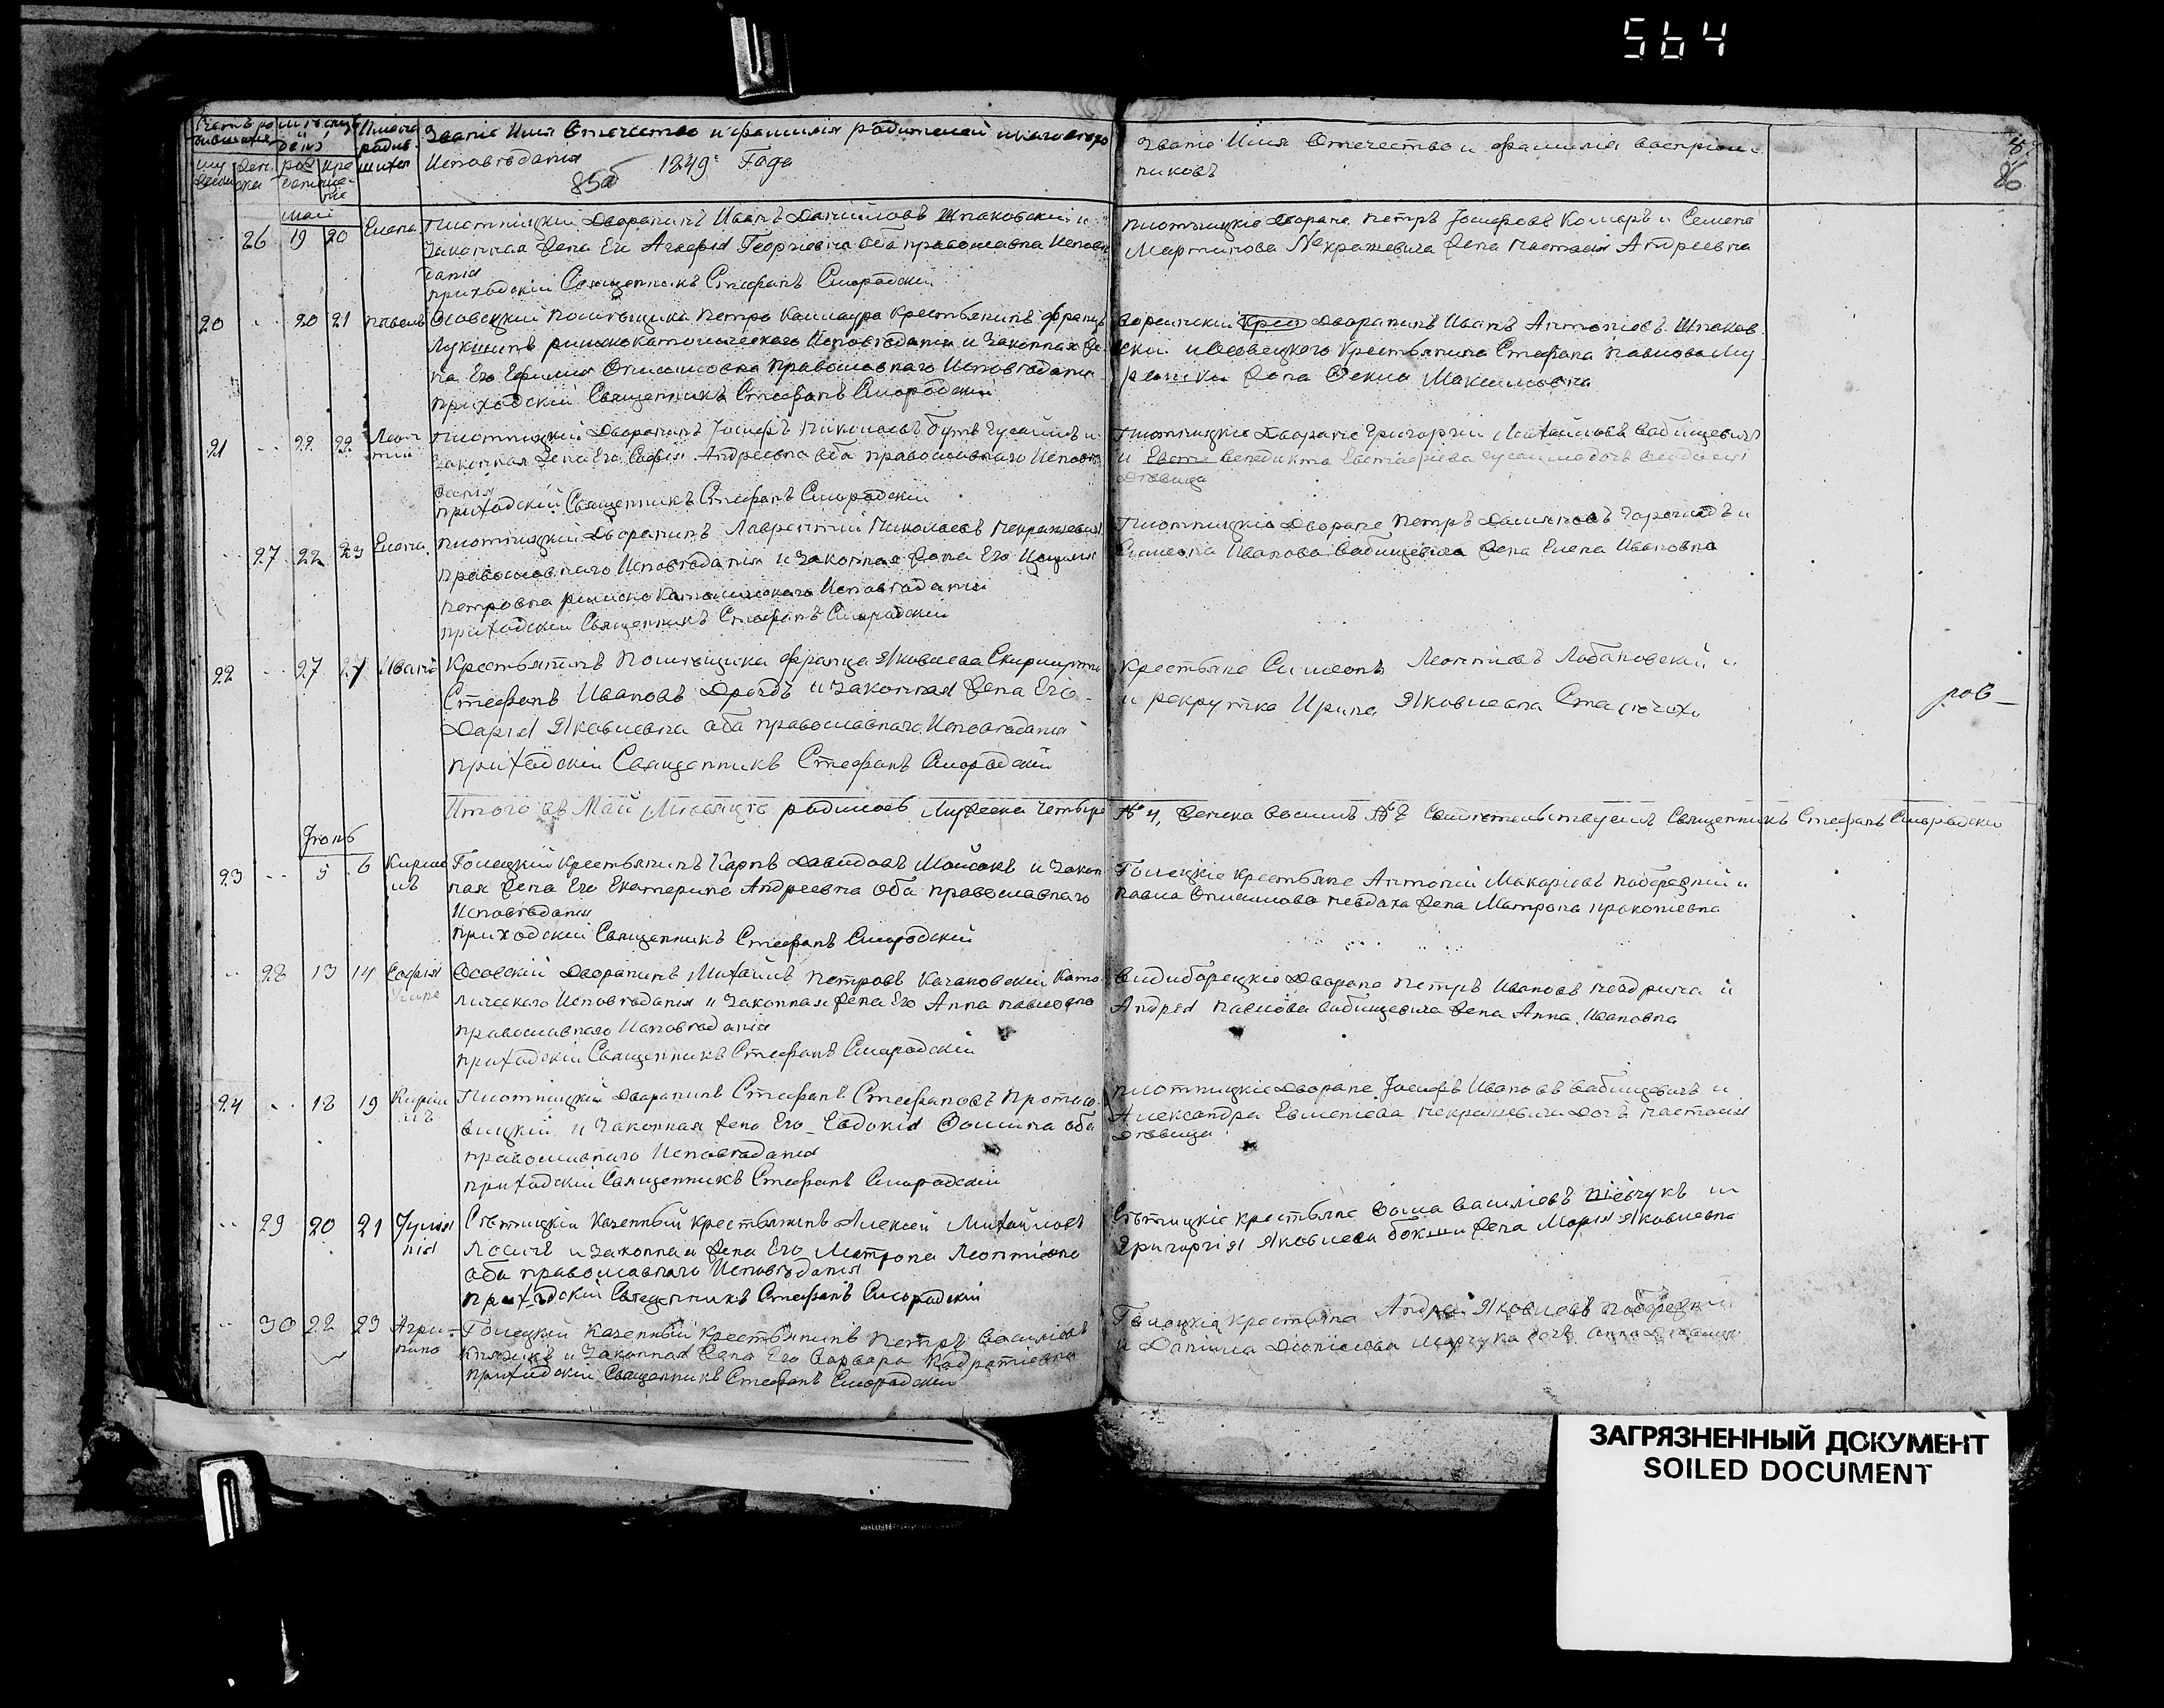 564
Счетъ ро
дившихся
Мѣсяцъ
и
день
Имена
родив
шихся
Званіе Имя Отечество и фамилія родителей и какого
Исповѣданія 1849: Года
85об
Званіе Имя Отечество и фамилія воспріем
никовъ
86
муж
женска
рож
кре
Май
26 19 20 Елена Плотницкій Дворянинъ Иванъ Даниловъ Шпаковскій и
Законная Жена Его Агафія Георгіевна оба православна Исповѣ
данія
приходскій Священникъ Стефанъ Смородскій
Плотницкіе Дворяне Петръ Іосифовъ Комаръ и Семена
Мартинова Некрашевича Жена Настасія Андреевна
20 20 21 Павелъ Осовецкій Помѣщика Петра крестьянинъ Францъ
римскокатолическаго Исповѣданія и Законная Же
на Его Православнаго Исповѣданія
приходскій Священникъ Стефанъ Смородскій
Дворянинъ Иванъ Антоніовъ Шпаков
скій и Осовецкого Крестьянина Стефана Павлова
Жена Максимовна
21 22 22 Леон
тій
Плотницкій Дворянинъ Іосифъ Николаевъ и
Законная Жена Его Софія Андреевна оба православнаго Исповѣ
данія
приходскій Священникъ Стефанъ Смородскій
Плотницкіе Дворяне Григорій Михайловъ Бабицевичъ
и Венедикта Евстафіева дочь Феодосія
Дѣвица
27 22 23 Елена Плотницкій Дворянинъ Лаврентій Николаевъ Некрашевичъ
православнаго Исповѣданія и Законная Жена Его
Петровна римско католическаго Исповѣданія
приходскій Священникъ Стефанъ Смородскій
Плотницкіе Дворяне Петръ и
Симеона Иванова Бабицевича Жена Елена Ивановна
22 27 27 Иванъ Крестьянинъ Помѣщика Франца Яковлева Скирмунта
Стефанъ Ивановъ Дроздъ и Законная Жена Его
Дарія Яковлевна оба православнаго Исповѣданія
приходскій Священникъ Стефанъ Смородскій
Крестьяне Симеонъ Леонтіовъ Лобановскій и
и рекрутка Ирина Яковлевна
Итого въ Май Мѣсяцѣ родилось Мужеска Четыре
№ 4, Женска восимъ № 8 Свидѣтельствуемъ Священникъ Стефанъ Смородскій
Іюнь
23 5 6 Кирил
лъ
Голецкій Крестьянинъ Карпъ Давидовъ и Закон
ная Жена Его Екатерина Андреевна Оба православнаго
Исповѣданія
приходскій Священникъ Стефанъ Смородскій
Голецкіе Крестьяне Антоній Макаріовъ Побережній и
Павла Онисимова Невдаха Жена Матрона Прокопіевна
28 13 14 Софія Осовскій Дворянинъ Михаилъ Петровъ Качановскій Като
лическаго Исповѣданія и Законная Жена Его Анна Павловна
православнаго Исповѣданія
приходскій Священникъ Стефанъ Смородскій
Видиборецкіе Дворяне Петръ Ивановъ и
Андрея Павлова Бабицевича Жена Анна Ивановна
24 18 19 Кирил
лъ
Плотницкій Дворянинъ Стефанъ Стефановъ Протасо
вицкій и Законная Жена Его Евдокія Фомина оба
православнаго Исповѣданія
приходскій Священникъ Стефанъ Смородскій
Плотницкіе Дворяне Іосифъ Ивановъ Бабицевичъ и
Александра Некрашевича Дочь Настасія
Дѣвица
29 20 21 Іулія
нія
Сѣтицкій Казенный Крестьянинъ Алексей Михайловъ
Лосичъ и Законная Жена Его Матрона Леонтіовна
оба православнаго Исповѣданія
приходскій Священникъ Стефанъ Смородскій
Сѣтицкіе Крестьяне Фома Василіевъ и
Григорія Яковлева Жена Марія Яковлевна
30 22 23 Агри-
пина
Голецкій Казенный Крестьянинъ Петръ Василіовъ
и Законная Жена Его Варвара
приходскій Священникъ Стефанъ Смородскій
Голецкіе Крестьяне Андрей Яковлевъ Побережній
и Даніила Діонисіева Марчука дочь Анна Дѣвица
ЗАГРЯЗНЕННЫЙ ДОКУМЕНТ
SOILED DOCUMENT